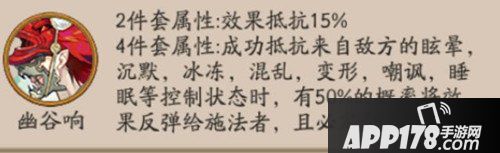 2件套属性:效果抵抗15%
4件套属性:成功抵抗来自敌方的眩晕,
沉默,冰冻,混乱,变形,嘲讽,睡
眠等控制状态时,有50%的概率将效
果反弹给施法者,且必
幽谷响
APP178手游网
.COM